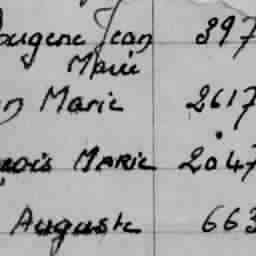 Eugene Jean 397
Marie
n Marie 2617
nçois MARIE 2047
Auguste 663